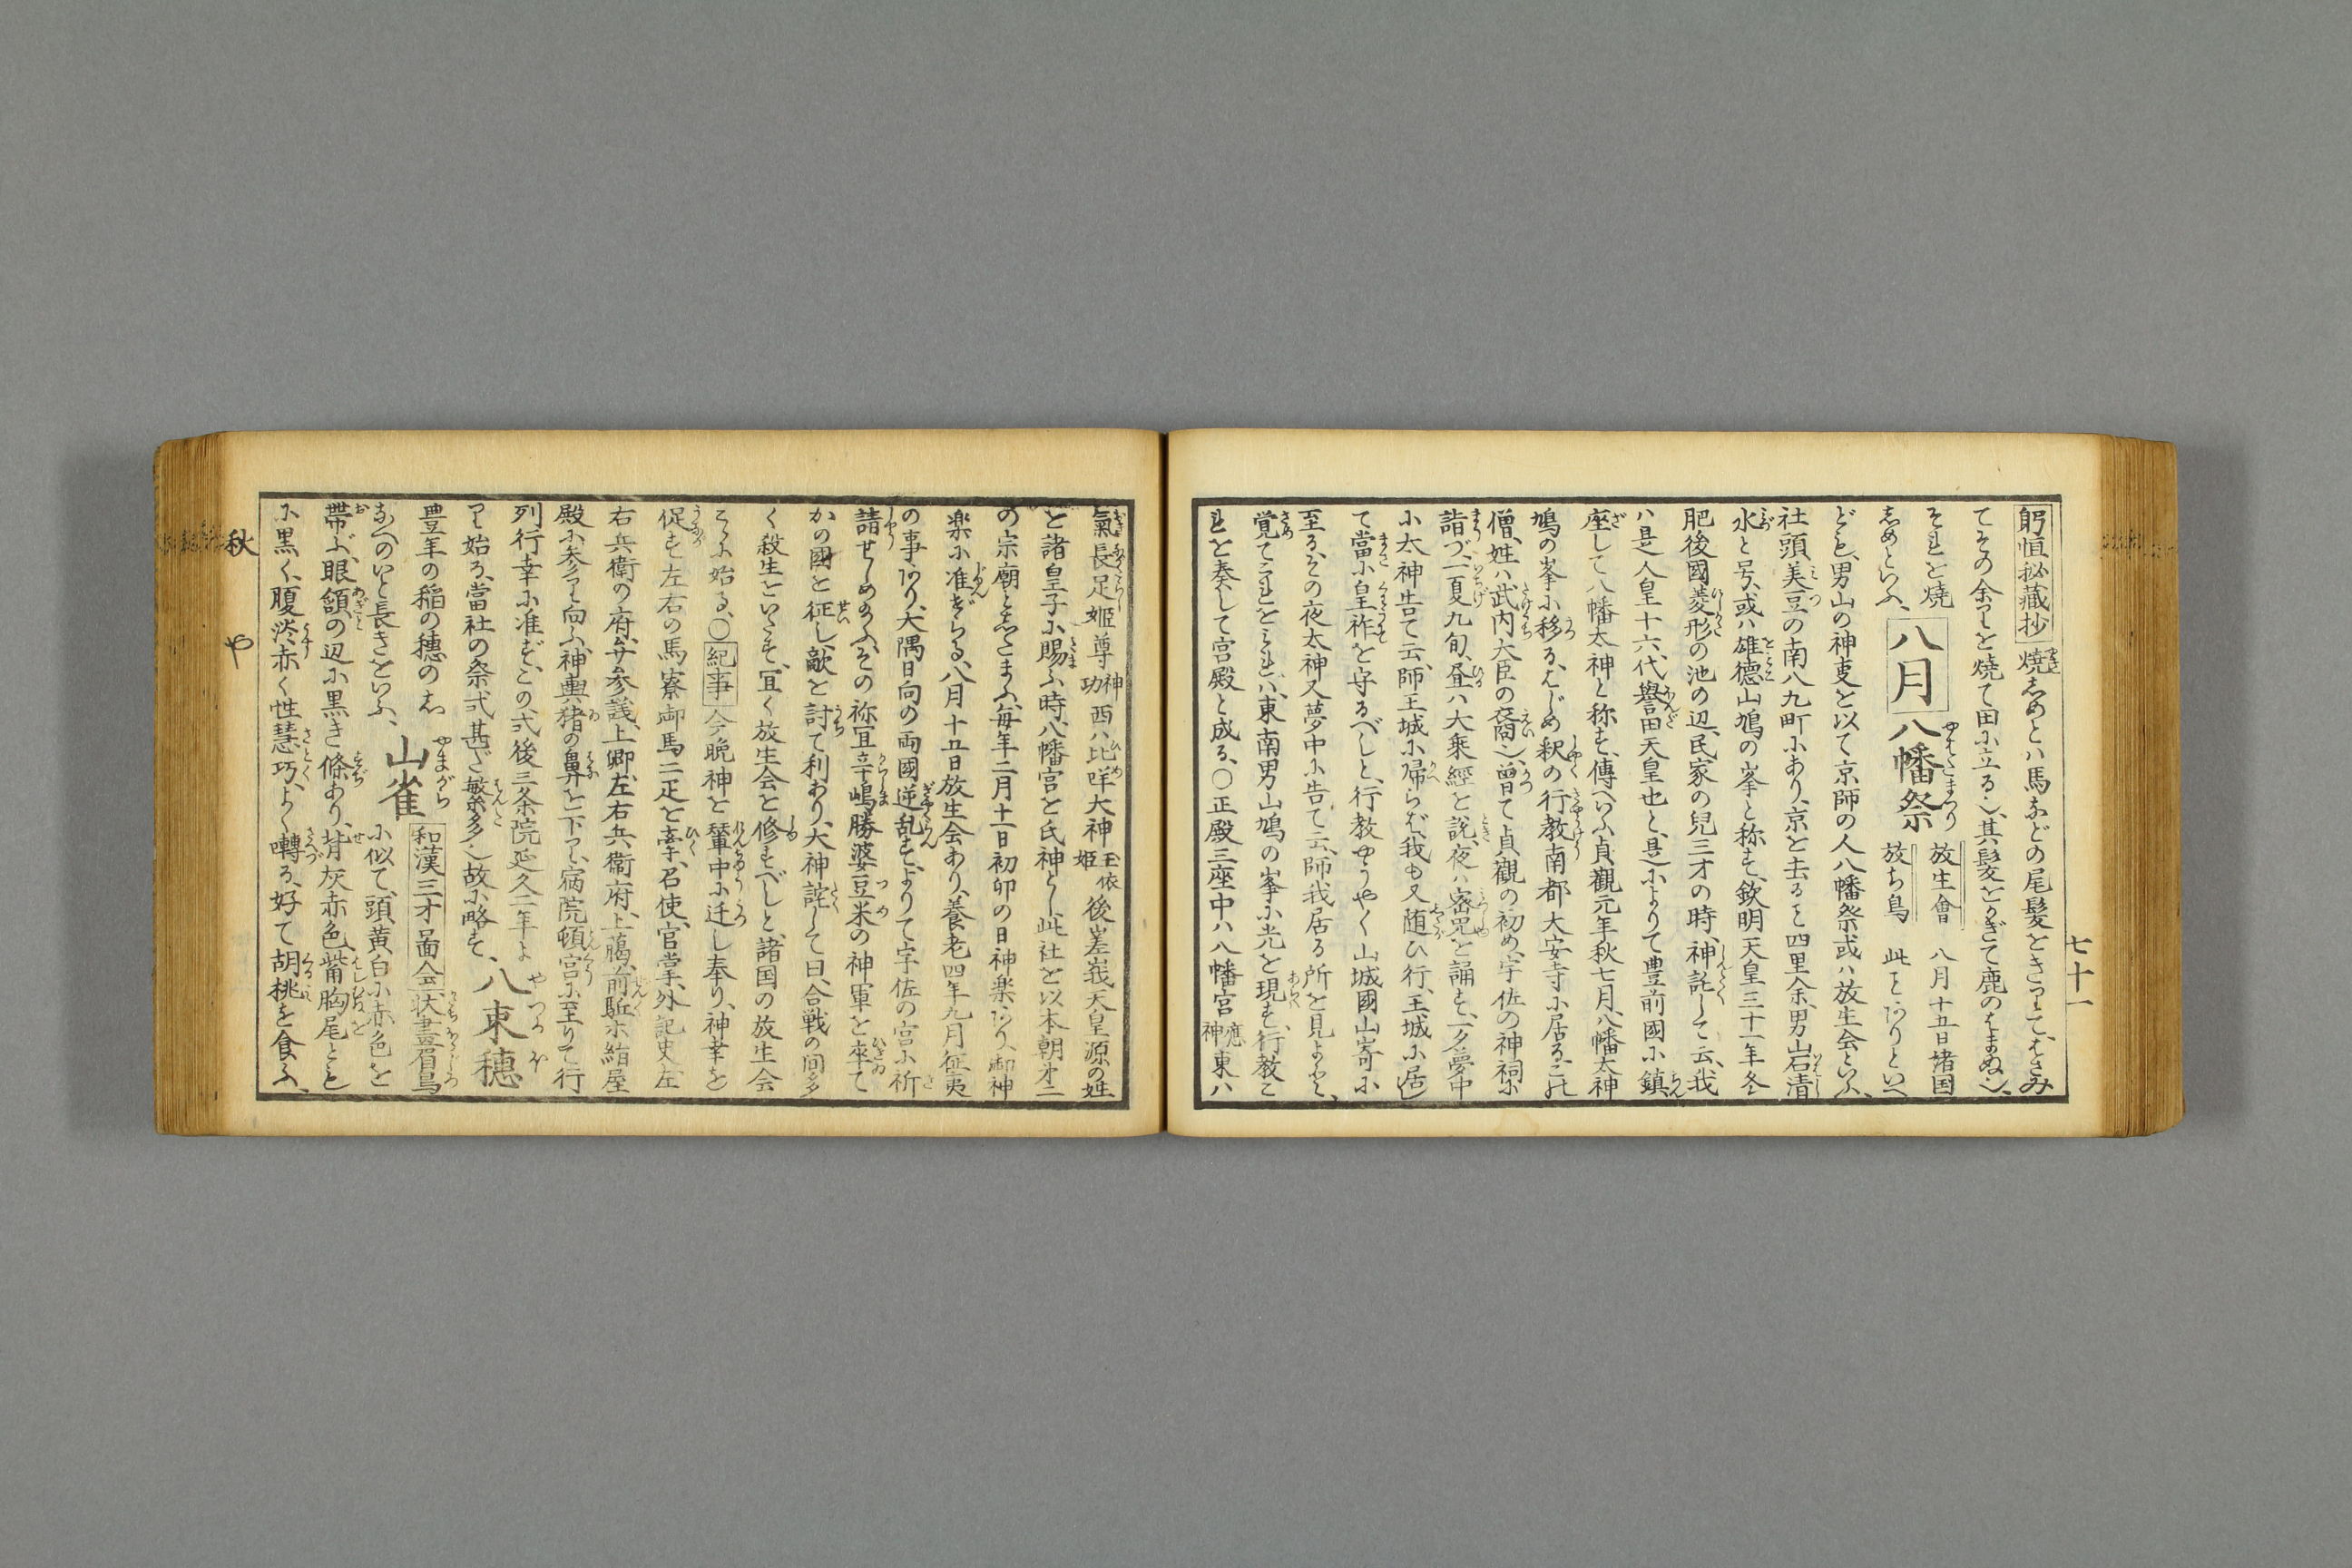 七十一
躬恒秘藏抄 焼しめとハ馬などの尾髪をきりて、はさみ
てその余りを焼て田に立る也、其髪をかぎて鹿のはまぬ也、
それを焼
しめといふ、
八月
八幡祭
放生會
放ち鳥
八月十五日諸国
此ことありといへ
ども、男山の神事を以て京師の人八幡祭或ハ放生会といふ、
社頭、美豆の南八九町にあり、京を去ること四里余、男山石清
水と号、或ハ雄徳山鳩の峯と称す、欽明天皇三十一年冬
肥後國菱形の池の辺、民家の兒三才の時、神託して云、我
ハ是人皇十六代、譽田天皇也と、是によりて豊前國に鎮
座して八幡太神と称す、傳へいふ貞觀元年秋七月、八幡太神
鳩の峯に移る、はじめ釈の行教南都大安寺に居る、この
僧、姓ハ武内大臣の裔也、曽て貞觀の初め、宇佐の神祠に
詣づ、一夏九旬、昼ハ大乗經を説、夜ハ密咒を誦す、一夕夢中
に太神告て云、師王城に帰らば、我も又随ひ行、王城に居し
て當に皇祚を守るべしと、行教やうやく山城國山崎に
至る、その夜太神又夢中に告て云、師我居る所を見よと、
覚てこれをみれバ、東南男山鳩の峯に光を現す、行教こ
れを奏して宮殿と成る、○正殿三座中ハ八幡宮應神東ハ
氣長足姫尊神功西ハ比咩大神玉依姫後嵯峩天皇源の姓
を諸皇子に賜ふ時、八幡宮を氏神とし、此社を以本朝第二
の宗廟と名たまふ、毎年二月十一日初卯の日神楽あり、御神
楽に准ぜらる、八月十五日放生会あり、養老四年九月征夷
の事あり、大隅日向の両國、逆乱す、よりて宇佐の宮に祈
請せしめたまふ、その祢宜辛嶋勝婆豆米の神軍を率て
かの國を征し、敵を討て利あり、大神詫して曰、合戦の間多
く殺生をいたす、宜く放生会を修すべしと、諸国の放生会
こゝに始る、○紀事 今晩神を輦中に迁し奉り、神幸を
促す、左右の馬寮御馬二疋を牽、召使、官掌、外記史、左
右兵衛の府、弁、参議、上卿、左右兵衞府、上﨟、前駈、ホ絹屋
殿に参り向ふ、神輿猪の鼻を下り、宿院頓宮に至りて行
列行幸に准ず、この式後三条院延久二年よ
り始る、當社の祭式甚だ繁多也、故に略す、
八束穂
豊年の稲の穂のな
なへのいと長きをいふ、
山雀
和漢三才圖会 状畫眉鳥
に似て、頭黄白に赤色を
帯ぶ、眼頷の辺に黒き條あり、背灰赤色、觜胸尾とも
に黒く、腹淡赤く、性慧巧、よく囀る、好て胡桃を食ふ、
秋
や